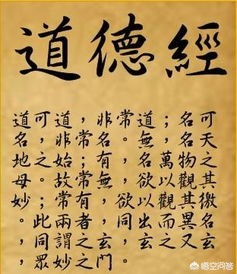 道德經
道可道,非常道;名可
名,非常名。無名天
地之始;有名萬物之
母。故常無,欲以觀其
妙;常有,欲以觀其徼
。此兩者,同出而異名
,同謂之玄。玄之又玄
,眾妙之門。
悟空问答